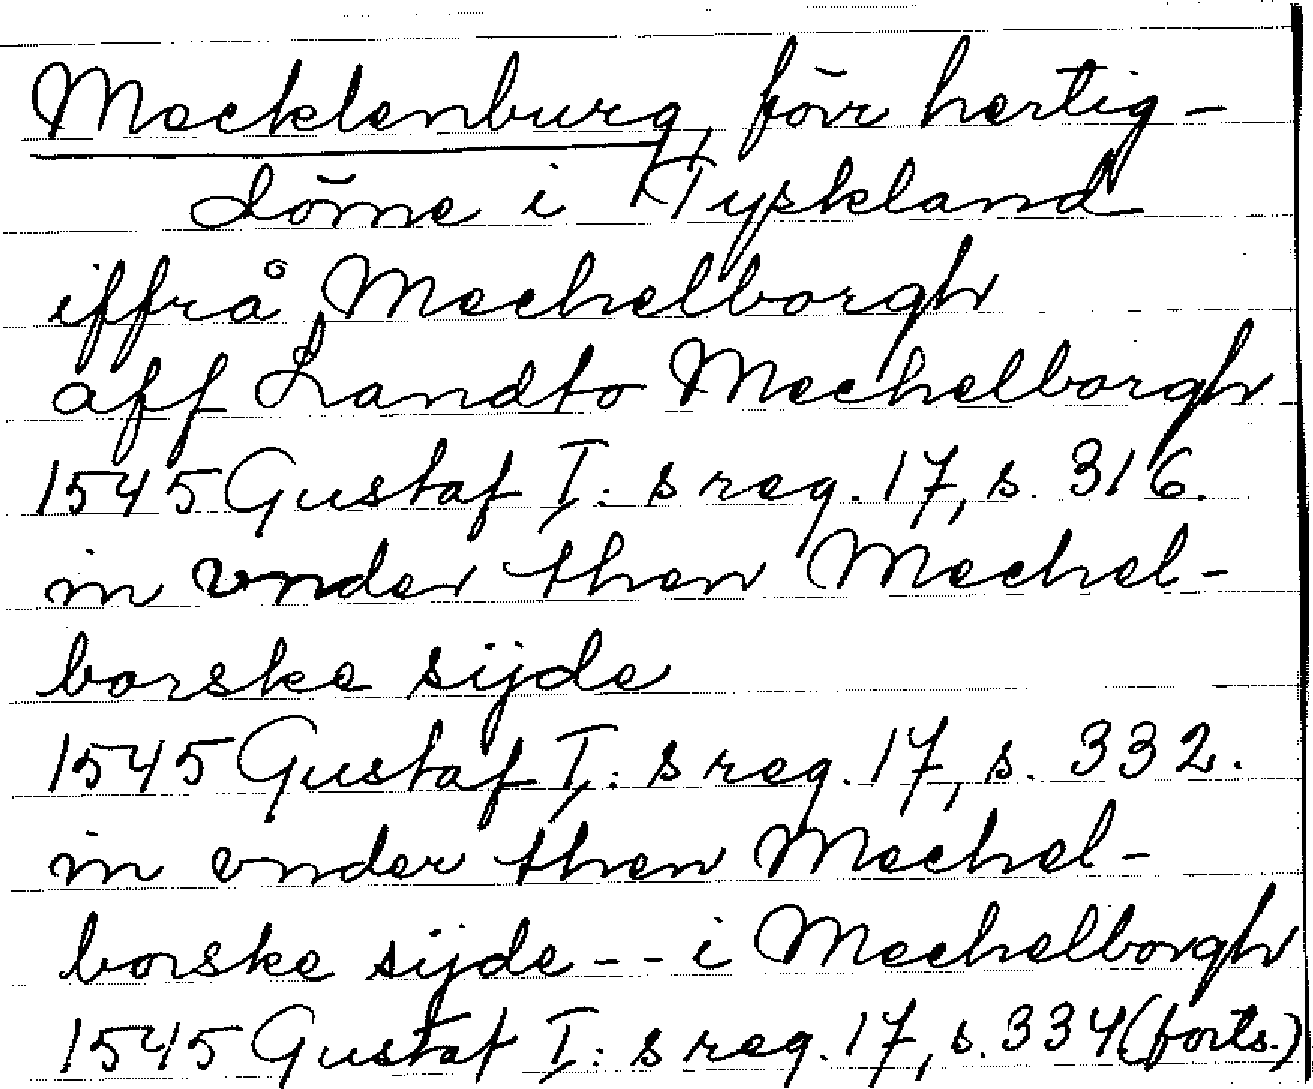 Mecklenburg, förr hertig-
döme i Tyskland
iffrå Mechelborgh
aff Landto Mechelborgh
1545 Gustaf I: s reg. 17, s. 316.
in vnder then Mechel-
borske sijde
1545 Gustaf I: s reg. 17, s. 332.
in vnder then Mechel-
borske sijde -- i Mechelborgh
1545 Gustaf I: s reg. 17, s. 334 (forts.)